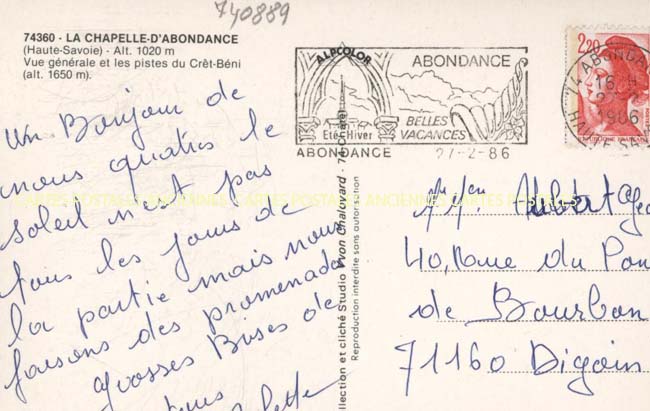 740889
74360 - LA CHAPELLE-D'ABONDANCE
(Haute-Savoie) - Alt. 1020 m
Vue générale et les pistes du Crêt-Béni
(alt. 1650 m).
Un Bonjour de
nous quatres le
soleil n'est pas
tous les jours de
la partie mais nous
faisons des promenades
grosses Bises de
tous
ALPCOLOR
Eté-Hiver
ABONDANCE
BELLES
VACANCES
ABONDANCE
27-2-86
2,20
ABONDANCE
16 H
27-2
1986
HAUTE SAVOIE
Collection et cliché Studio Yvon Chalovard - 74 Châtel
Reproduction interdite sans autorisation
Aubert
40, Rue du Pon
de Bourbon
71160 Digoin
CARTES POSTALES ANCIENNES CARTES POSTALES ANCIENNES CARTES POSTALES